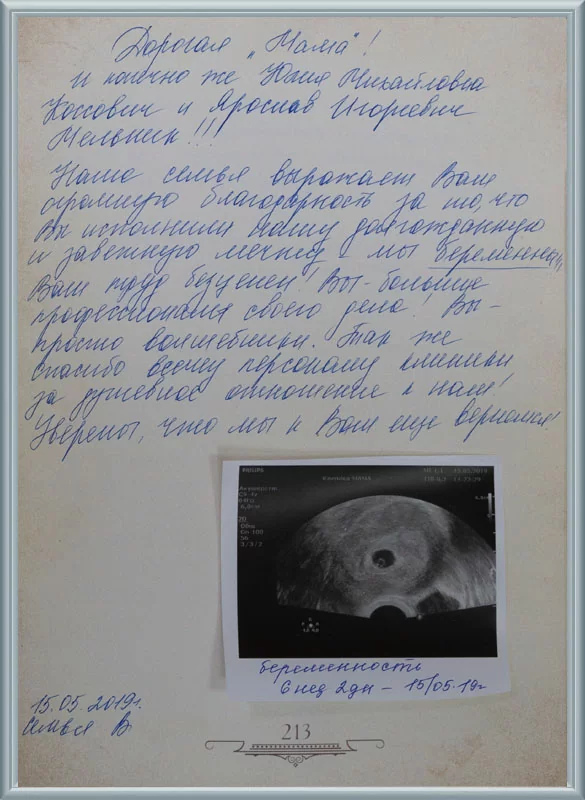 Дорогая „Мама"!
и конечно же Юлия Михайловна
Коссович и Ярослав Игоревич
Мельник!!!
Наша семья выражает Вам
огромную благодарность за то, что
Вы исполнили нашу долгожданную
и заветную мечту - мы беременны!!!
Ваш труд бесценен! Вы - большие
профессионалы своего дела! Вы -
просто волшебники. Так же
спасибо всему персоналу клиники
за душевное отношение к нам!
Уверены, что мы к Вам еще вернемся!
PHILIPS
Клиника МАМА
15.05.2019
Акушерство
6,0cm
2D
Gn 100
56
3/3/3
беременность
6 нед 2дн - 15/05.19г
15.05.2019г.
Семья В.
213